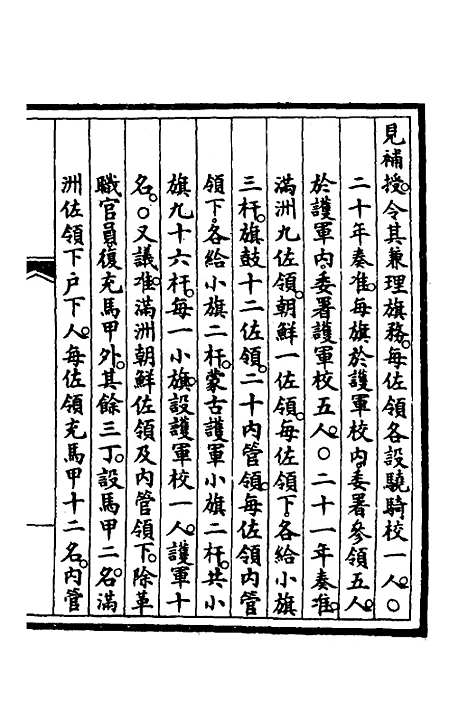 見補授。令其兼理旗務。每佐領各設驍騎校一人。○
二十年奏准。每旗於護軍校內。委署參領五人。
於護軍內委署護軍校五人。○二十一年奏准。
滿洲九佐領。朝鮮一佐領。每佐領下。各給小旗
三杆。旗鼓十二佐領。二十內管領。每佐領內管
領下。各給小旗二杆。蒙古護軍小旗二杆。共小
旗九十六杆。每一小旗。設護軍校一人。護軍十
名。○又議准。滿洲朝鮮佐領及內管領下。除革
職官員復充馬甲外。其餘三丁。設馬甲二名。滿
洲佐領下戶下人。每佐領充馬甲十二名。內管